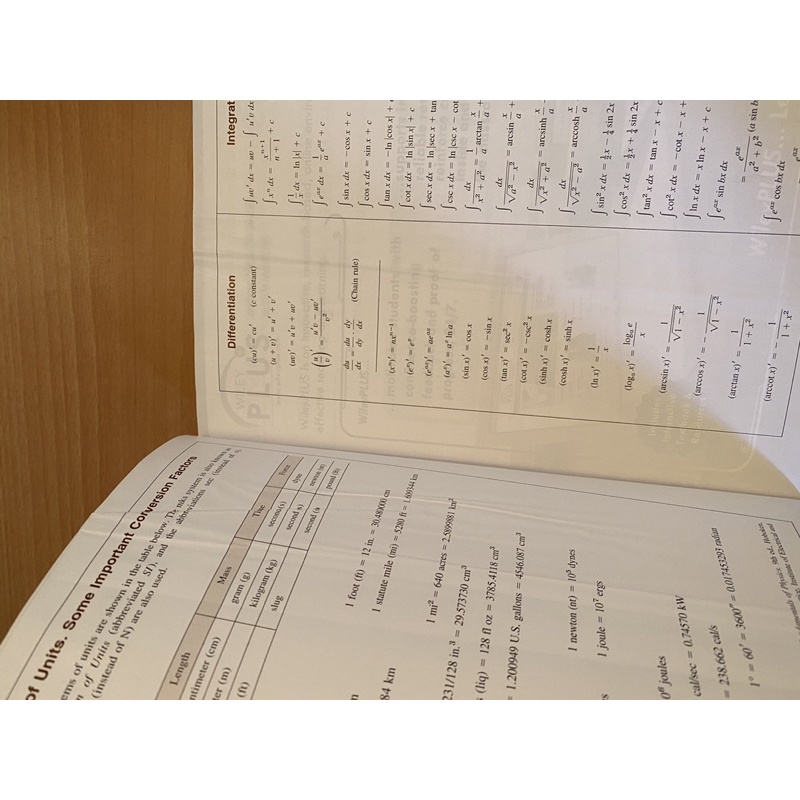 of Units. Some Important Conversion Factors
ems of units are shown in the table below. The mks system is also known as
of Units (abbreviated SI), and the abbreviations sec (instead of s),
(instead of N) are also used.
Length Mass Time Force
ntimeter (cm) gram (g) second (s) dyne
ter (m) kilogram (kg) second (s) newton (nt)
(ft) slug second (s pound (lb)
1 foot (ft) = 12 in. = 30.480000 cm
1 statute mile (mi) = 5280 ft = 1.609344 km
84 km
1 mi² = 640 acres = 2.5899881 km²
231/128 in.³ = 29.573730 cm³
s (liq) = 128 fl oz = 3785.4118 cm³
= 1.200949 U.S. gallons = 4546.087 cm³
1 newton (nt) = 10⁵ dynes
1 joule = 10⁷ ergs
0⁶ joules
cal/sec = 0.74570 kW
= 238.662 cal/s
1° = 60′ = 3600″ = 0.017453293 radian
Differentiation
(cu)′ = cu′ (c constant)
(u + v)′ = u′ + v′
(uv)′ = u′v + uv′
(u/v)′ = (u′v − uv′)/v²
du/dx = du/dy · dy/dx (Chain rule)
(xⁿ)′ = nxⁿ⁻¹
(eˣ)′ = eˣ
(eᵃˣ)′ = aeᵃˣ
(aˣ)′ = aˣ ln a
(sin x)′ = cos x
(cos x)′ = −sin x
(tan x)′ = sec² x
(cot x)′ = −csc² x
(sinh x)′ = cosh x
(cosh x)′ = sinh x
(ln x)′ = 1/x
(logₐ x)′ = logₐ e/x
(arcsin x)′ = 1/√(1 − x²)
(arccos x)′ = −1/√(1 − x²)
(arctan x)′ = 1/(1 + x²)
(arccot x)′ = −1/(1 + x²)
Integrat
∫ uv′ dx = uv − ∫ u′v dx
∫ xⁿ dx = xⁿ⁺¹/(n + 1) + c
∫ 1/x dx = ln |x| + c
∫ eᵃˣ dx = 1/a eᵃˣ + c
∫ sin x dx = −cos x + c
∫ cos x dx = sin x + c
∫ tan x dx = −ln |cos x| +
∫ cot x dx = ln |sin x| + c
∫ sec x dx = ln |sec x + tan
∫ csc x dx = ln |csc x − cot
∫ dx/(x² + a²) = 1/a arctan x/a +
∫ dx/√(a² − x²) = arcsin x/a +
∫ dx/√(x² + a²) = arcsinh x/a
∫ dx/√(x² − a²) = arccosh x/a
∫ sin² x dx = ½x − ¼ sin 2x
∫ cos² x dx = ½x + ¼ sin 2x
∫ tan² x dx = tan x − x + c
∫ cot² x dx = −cot x − x +
∫ ln x dx = x ln x − x + c
∫ eᵃˣ sin bx dx
= eᵃˣ/(a² + b²) (a sin b
∫ eᵃˣ cos bx dx